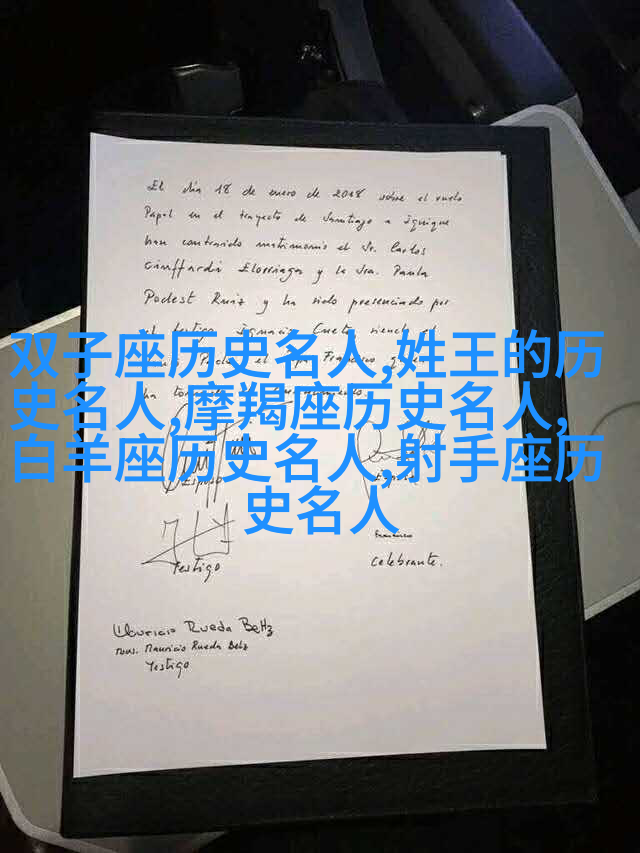 El día 18 de enero de 2018 sobre el vuelo
Papal en el trayecto de Santiago a Iquique
han contraido matrimonio el Sr. Carlos
Ciuffardi Elorriaga y la Sra. Paula
Podest Ruiz y ha sido presenciado por
el testigo Ignacio Cueto siendo el
el Papa Francisco
ha
双子座历史名人,姓王的历
史名人,摩羯座历史名人,
白羊座历史名人,射手座历
史名人
Esposo
Esposa
Testigo
Francisco
Celebrante.
Mauricio Rueda Beltz
Mons. Mauricio Rueda Beltz
Testigo